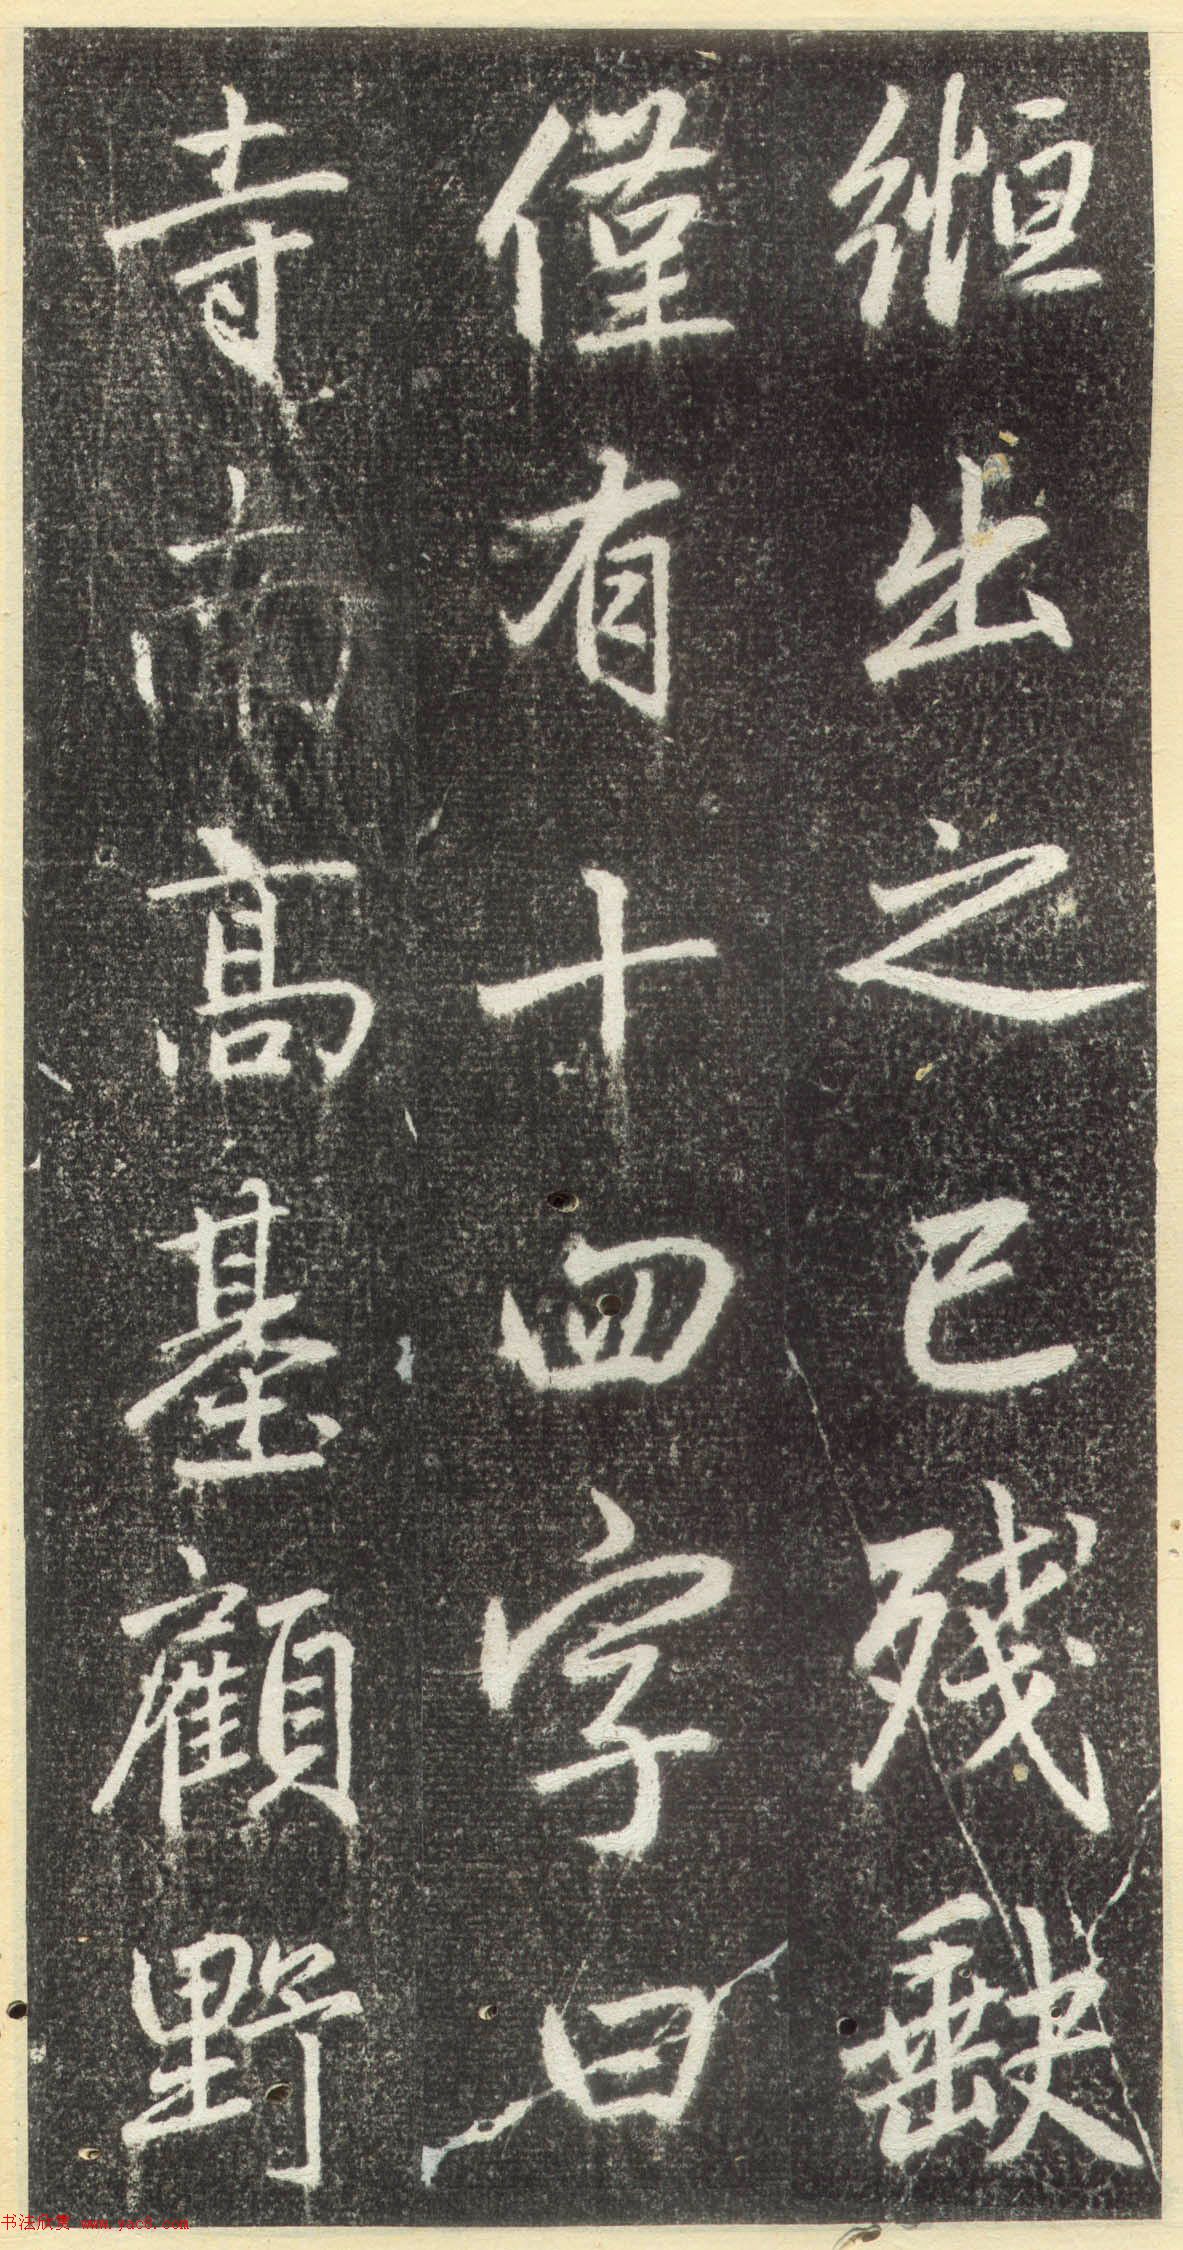 縆出之已殘缺
僅有十四字曰
寺而高基顧野
书法欣赏 www.yac8.com